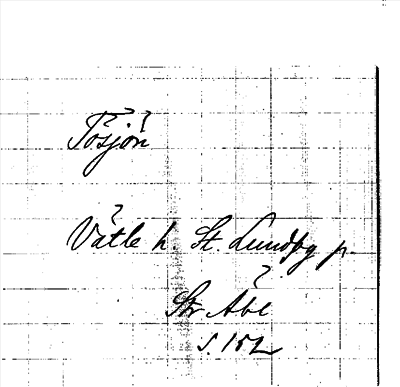 Tosjön
Vätle h. St. Lundby p.
Str Åbl
s. 152